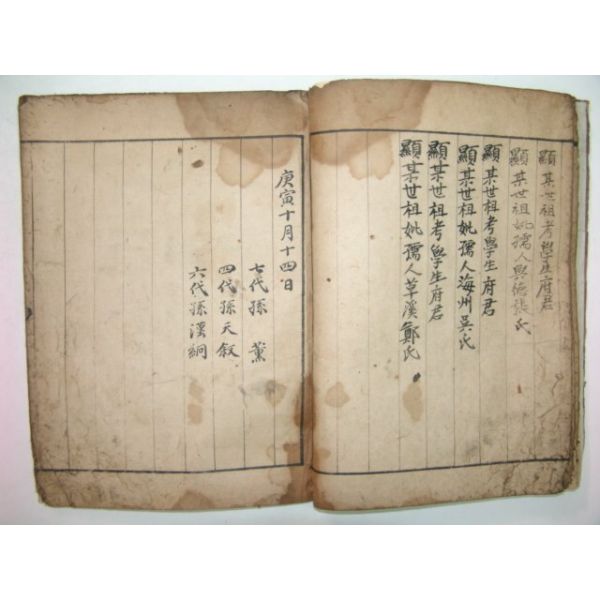 顯某世祖考學生府君
顯某世祖妣孺人興德張氏
顯某世祖考學生府君
顯某世祖妣孺人海州吳氏
顯某世祖考學生府君
顯某世祖妣孺人草溪鄭氏
庚寅十月十四日
七代孫 薰
四代孫天敘
六代孫漢絅